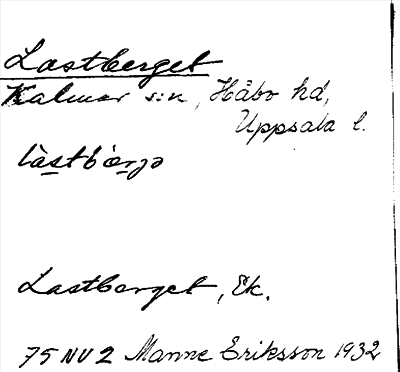 Lastberget
Kalmar s:n, Håbo hd,
Uppsala l.
làstbærjə
Lastberget, Ek.
75 NV 2 Manne Eriksson 1932